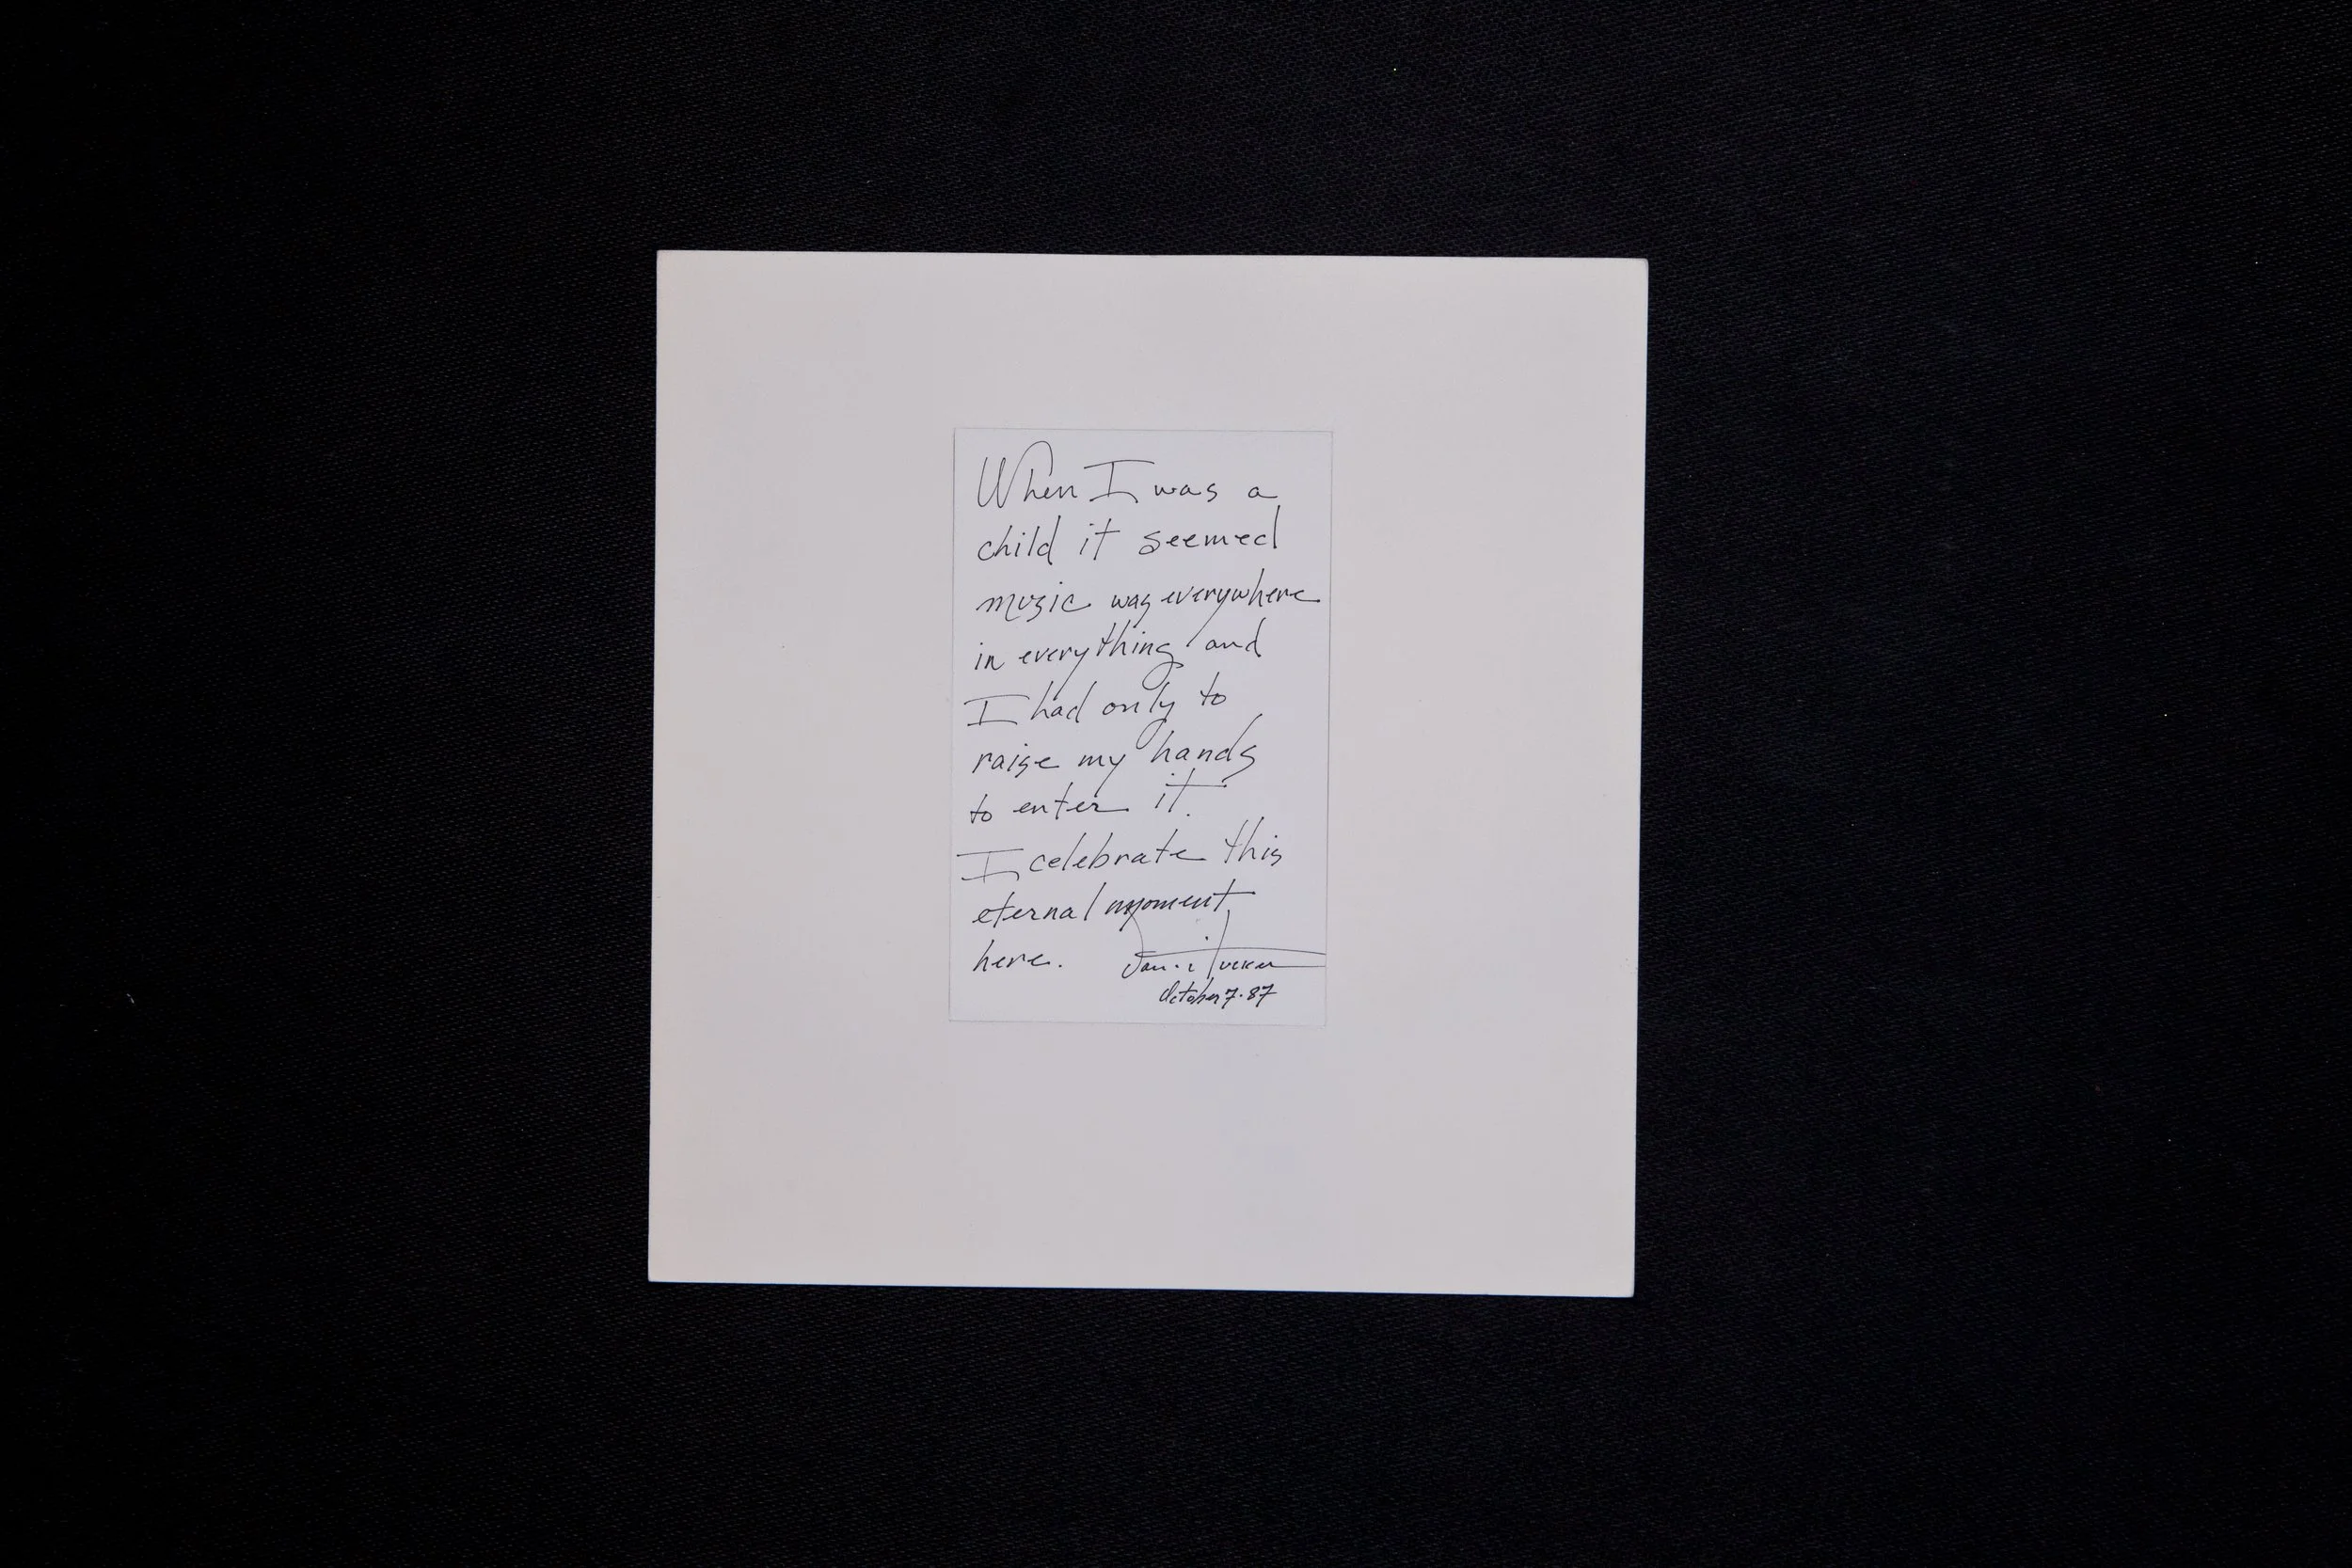 When I was a
child it seemed
music was everywhere
in everything and
I had only to
raise my hands
to enter it.
I celebrate this
eternal moment
here.
October 7·87